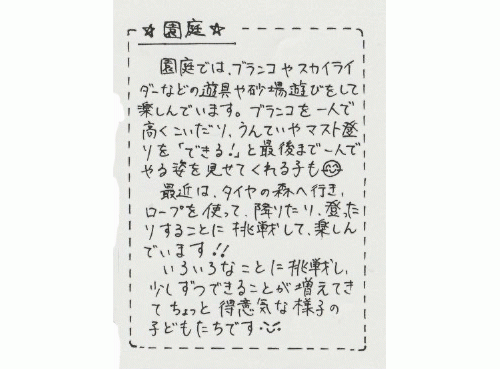 ☆園庭☆
園庭では、ブランコやスカイライ
ダーなどの遊具や砂場遊びをして
楽しんでいます。ブランコを一人で
高くこいだり、うんていやマスト登
りを「できる!」と最後まで一人で
やる姿を見せてくれる子も😊
最近は、タイヤの森へ行き、
ロープを使って、降りたり、登った
りすることに挑戦して、楽しん
でいます!!
いろいろなことに挑戦し、
少しずつできることが増えてき
てちょっと得意気な様子の
子どもたちです